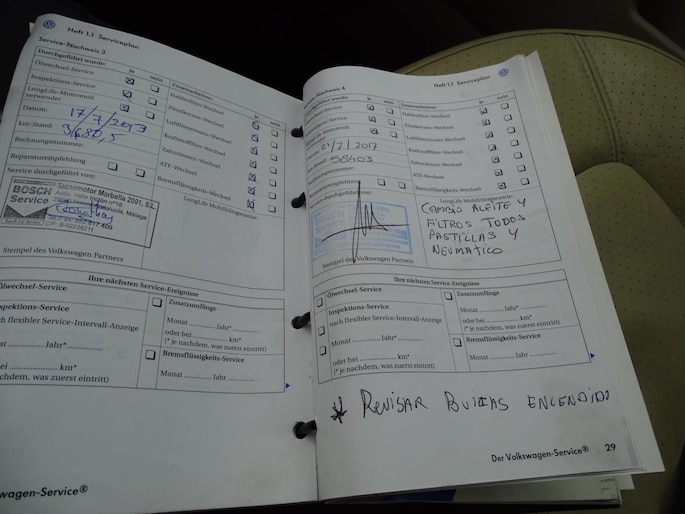 Heft 1.1 Serviceplan
Service-Nachweis 3
Durchgeführt wurde: ja nein
Ölwechsel-Service
Inspektions-Service
LongLife-Motorenöl
verwendet
Datum: 17/7/2013
km-Stand:
Rechnungsnummer:
Reparaturempfehlung
Service durchgeführt von:
Zusatzarbeiten: ja nein
Staubfilter-Wechsel
Zündkerzen-Wechsel
Luftfiltereinsatz-Wechsel
Kraftstofffilter-Wechsel
Zahnriemen-Wechsel
ATF-Wechsel
Bremsflüssigkeits-Wechsel
LongLife Mobilitätsgarantie:
BOSCH
Service
Tecnomotor Marbella 2001, S.L.
CIF: B-92238211
Stempel des Volkswagen Partners
Ihre nächsten Service-Ereignisse
Ölwechsel-Service
Inspektions-Service
nach flexibler Service-Intervall-Anzeige
Monat Jahr*
oder bei km*
(* je nachdem, was zuerst eintritt)
Zusatzumfänge
Monat Jahr*
oder bei km*
(* je nachdem, was zuerst eintritt)
Bremsflüssigkeits-Service
Monat Jahr
Volkswagen-Service®
Heft 1.1 Serviceplan
Service-Nachweis 4
ja nein
Zusatzarbeiten: ja nein
Staubfilter-Wechsel
Zündkerzen-Wechsel
Luftfiltereinsatz-Wechsel
Kraftstofffilter-Wechsel
Zahnriemen-Wechsel
ATF-Wechsel
Bremsflüssigkeits-Wechsel
LongLife Mobilitätsgarantie:
21/2/2017
58403
CAMBIO ACEITE Y
FILTROS TODOS
PASTILLAS Y
NEUMATICO
Stempel des Volkswagen Partners
Ihre nächsten Service-Ereignisse
Ölwechsel-Service
Inspektions-Service
nach flexibler Service-Intervall-Anzeige
Monat Jahr*
oder bei km*
(* je nachdem, was zuerst eintritt)
Zusatzumfänge
Monat Jahr*
oder bei km*
(* je nachdem, was zuerst eintritt)
Bremsflüssigkeits-Service
Monat Jahr
* REVISAR BUJIAS ENCENDIDO
Der Volkswagen-Service® 29